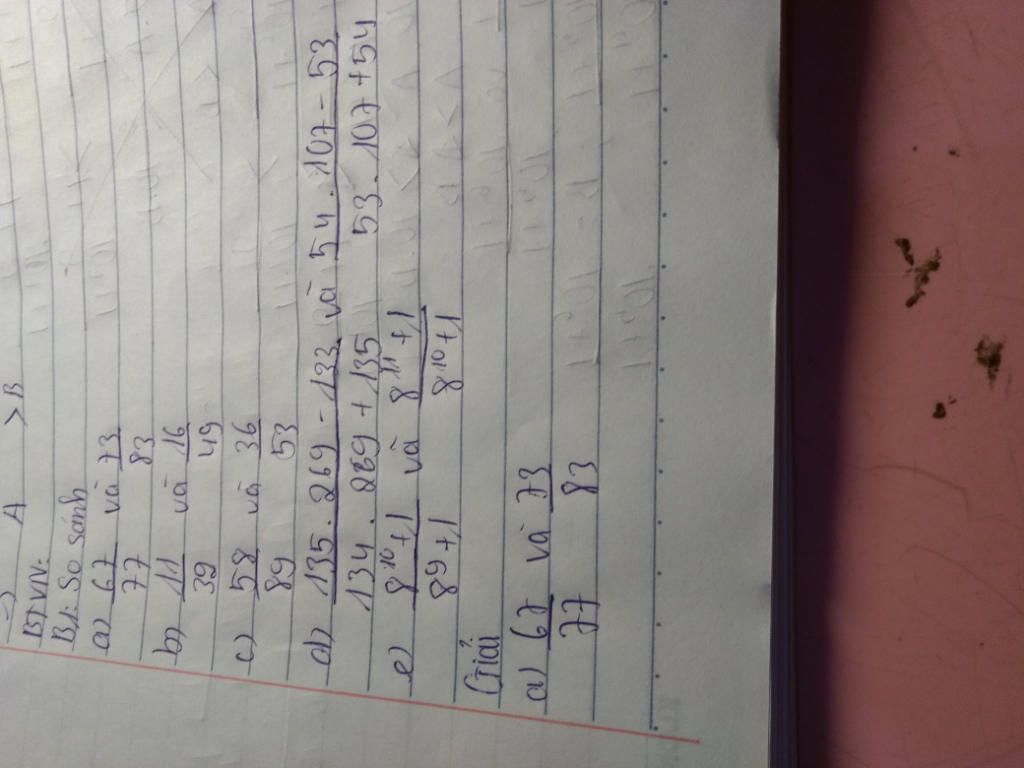 =) A > B
BTVN:
B1: So sánh
a) 67/77 và 73/83
b) 11/39 và 16/49
c) 58/89 và 36/53
d) 135.269-133/134.269+135 và 54.107-53/53.107+54
e) 8¹⁰+1/8⁹+1 và 8¹¹+1/8¹⁰+1
Giải
a) 67/77 và 73/83